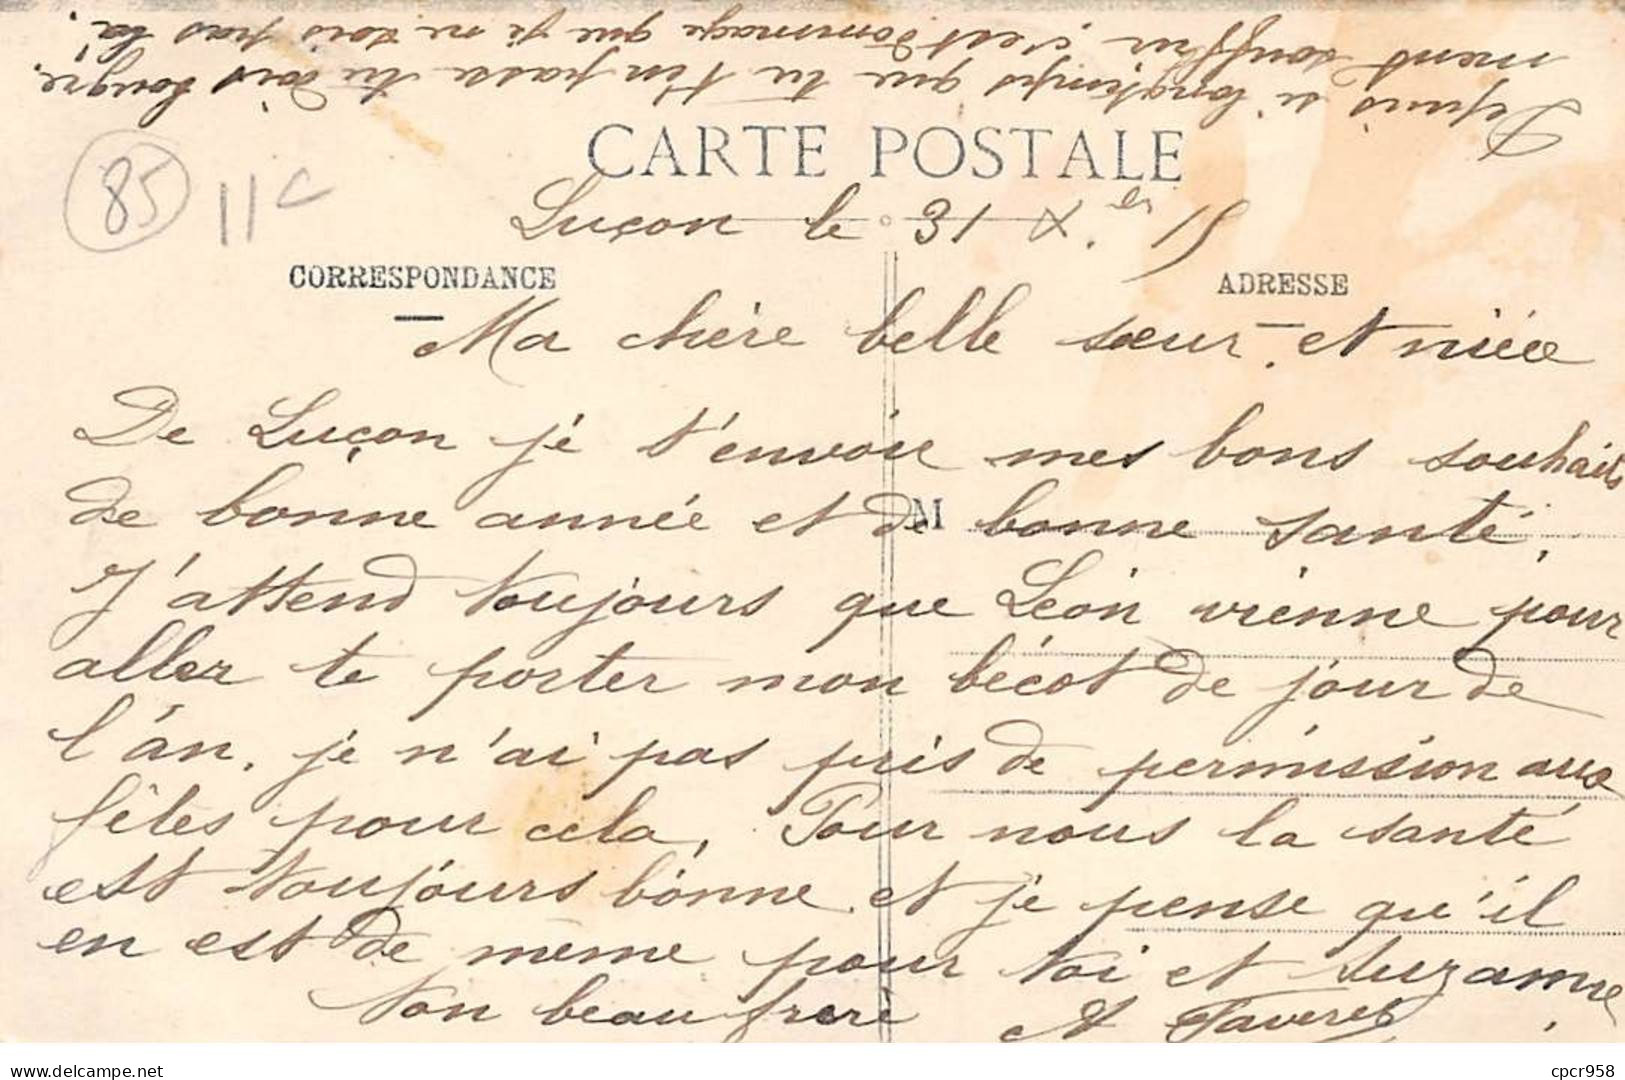 Depuis si longtemps que tu t'en passe tu dois bougre-
ment souffrir c'est dommage que je ne sois pas là!
CARTE POSTALE
85 11c
Luçon le 31 Xer 15
CORRESPONDANCE
ADRESSE
Ma chère belle sœur et nièce
De Luçon je t'envoie mes bons souhaits
de bonne année et de bonne santé.
M
J'attend toujours que Léon vienne pour
aller te porter mon bécot de jour de
l'an. je n'ai pas pris de permission aux
fêtes pour cela. Pour nous la santé
est toujours bonne et je pense qu'il
en est de même pour toi et Suzanne
Ton beau frère A Taveret
delcampe.net
cpcr958